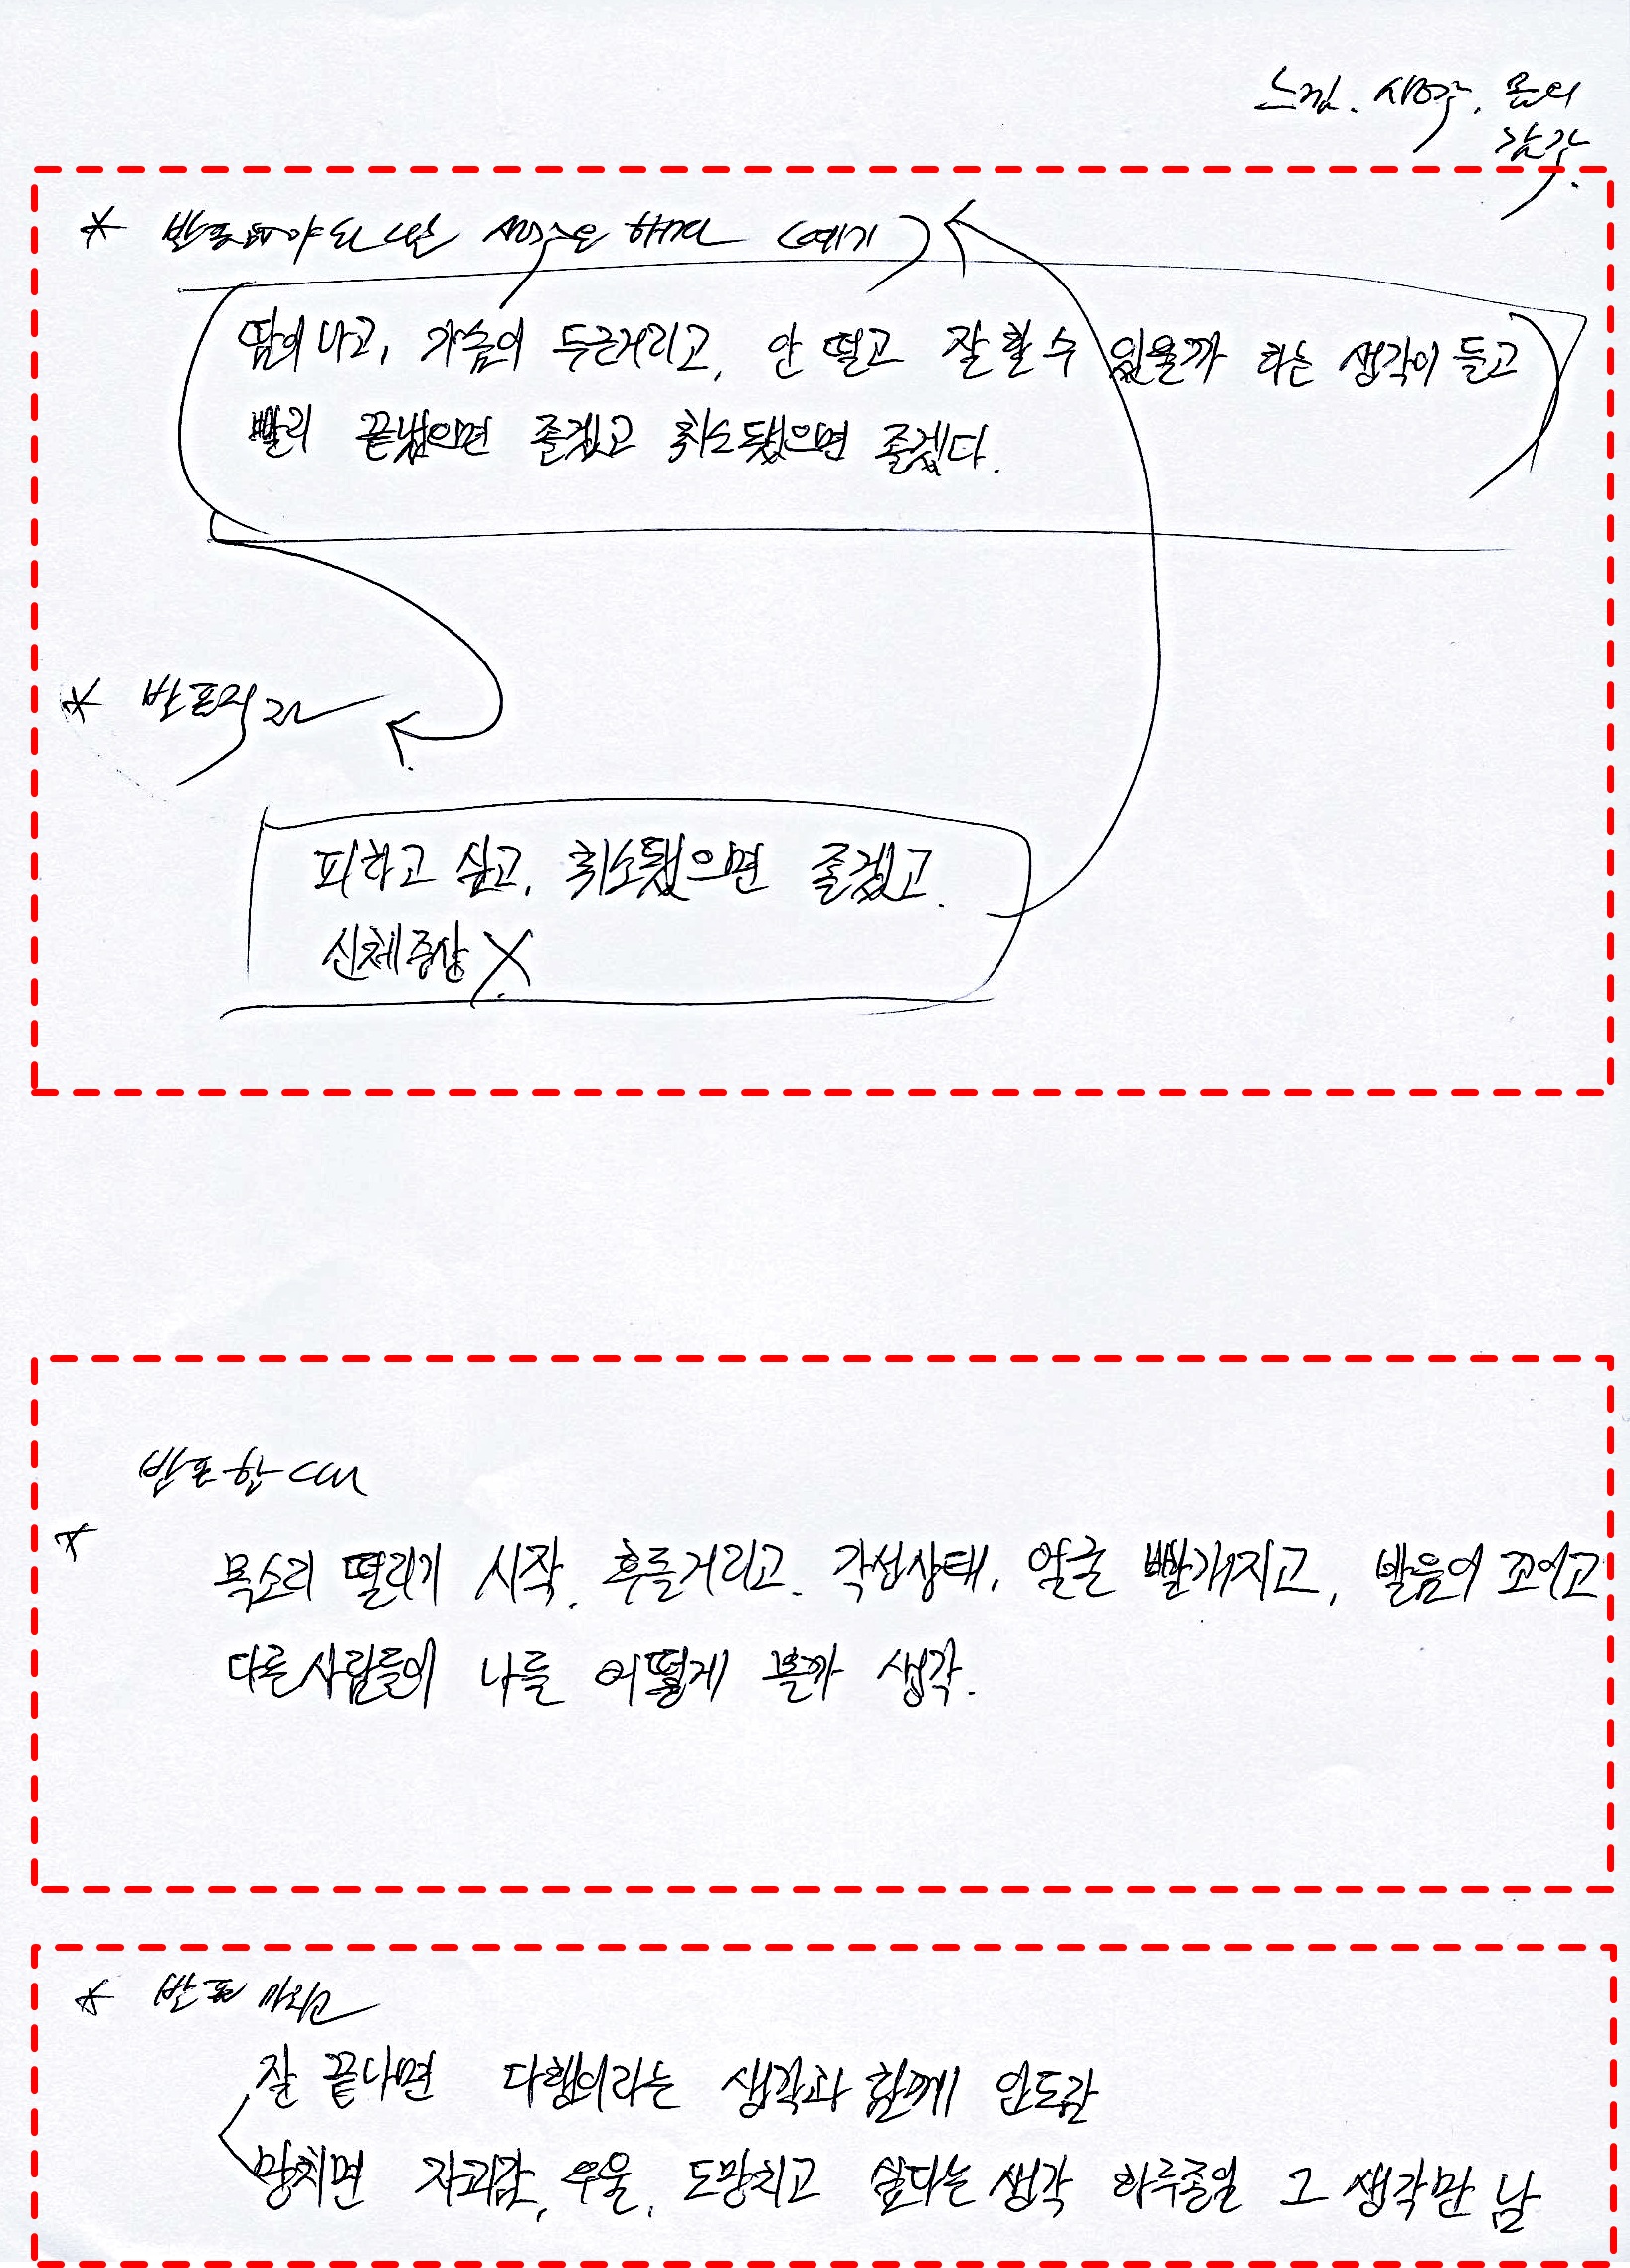 느낌. 생각. 몸의
감각.
* 발표해야 된다는 생각을 하게되 (예기)
땀이 나고, 가슴이 두근거리고, 안 떨고 잘 할 수 있을까 하는 생각이 들고
빨리 끝냈으면 좋겠고 취소됐으면 좋겠다.
* 발표직전
피하고 싶고, 취소됐으면 좋겠고.
신체증상 X
발표할 때
* 목소리 떨리기 시작. 후들거리고. 각성상태. 얼굴 빨개지고, 발음이 꼬이고
다른사람들이 나를 어떻게 볼까 생각.
* 발표 마치고
잘 끝나면 다행이라는 생각과 함께 안도감
망치면 자괴감, 우울, 도망치고 싶다는 생각 하루종일 그 생각만 남